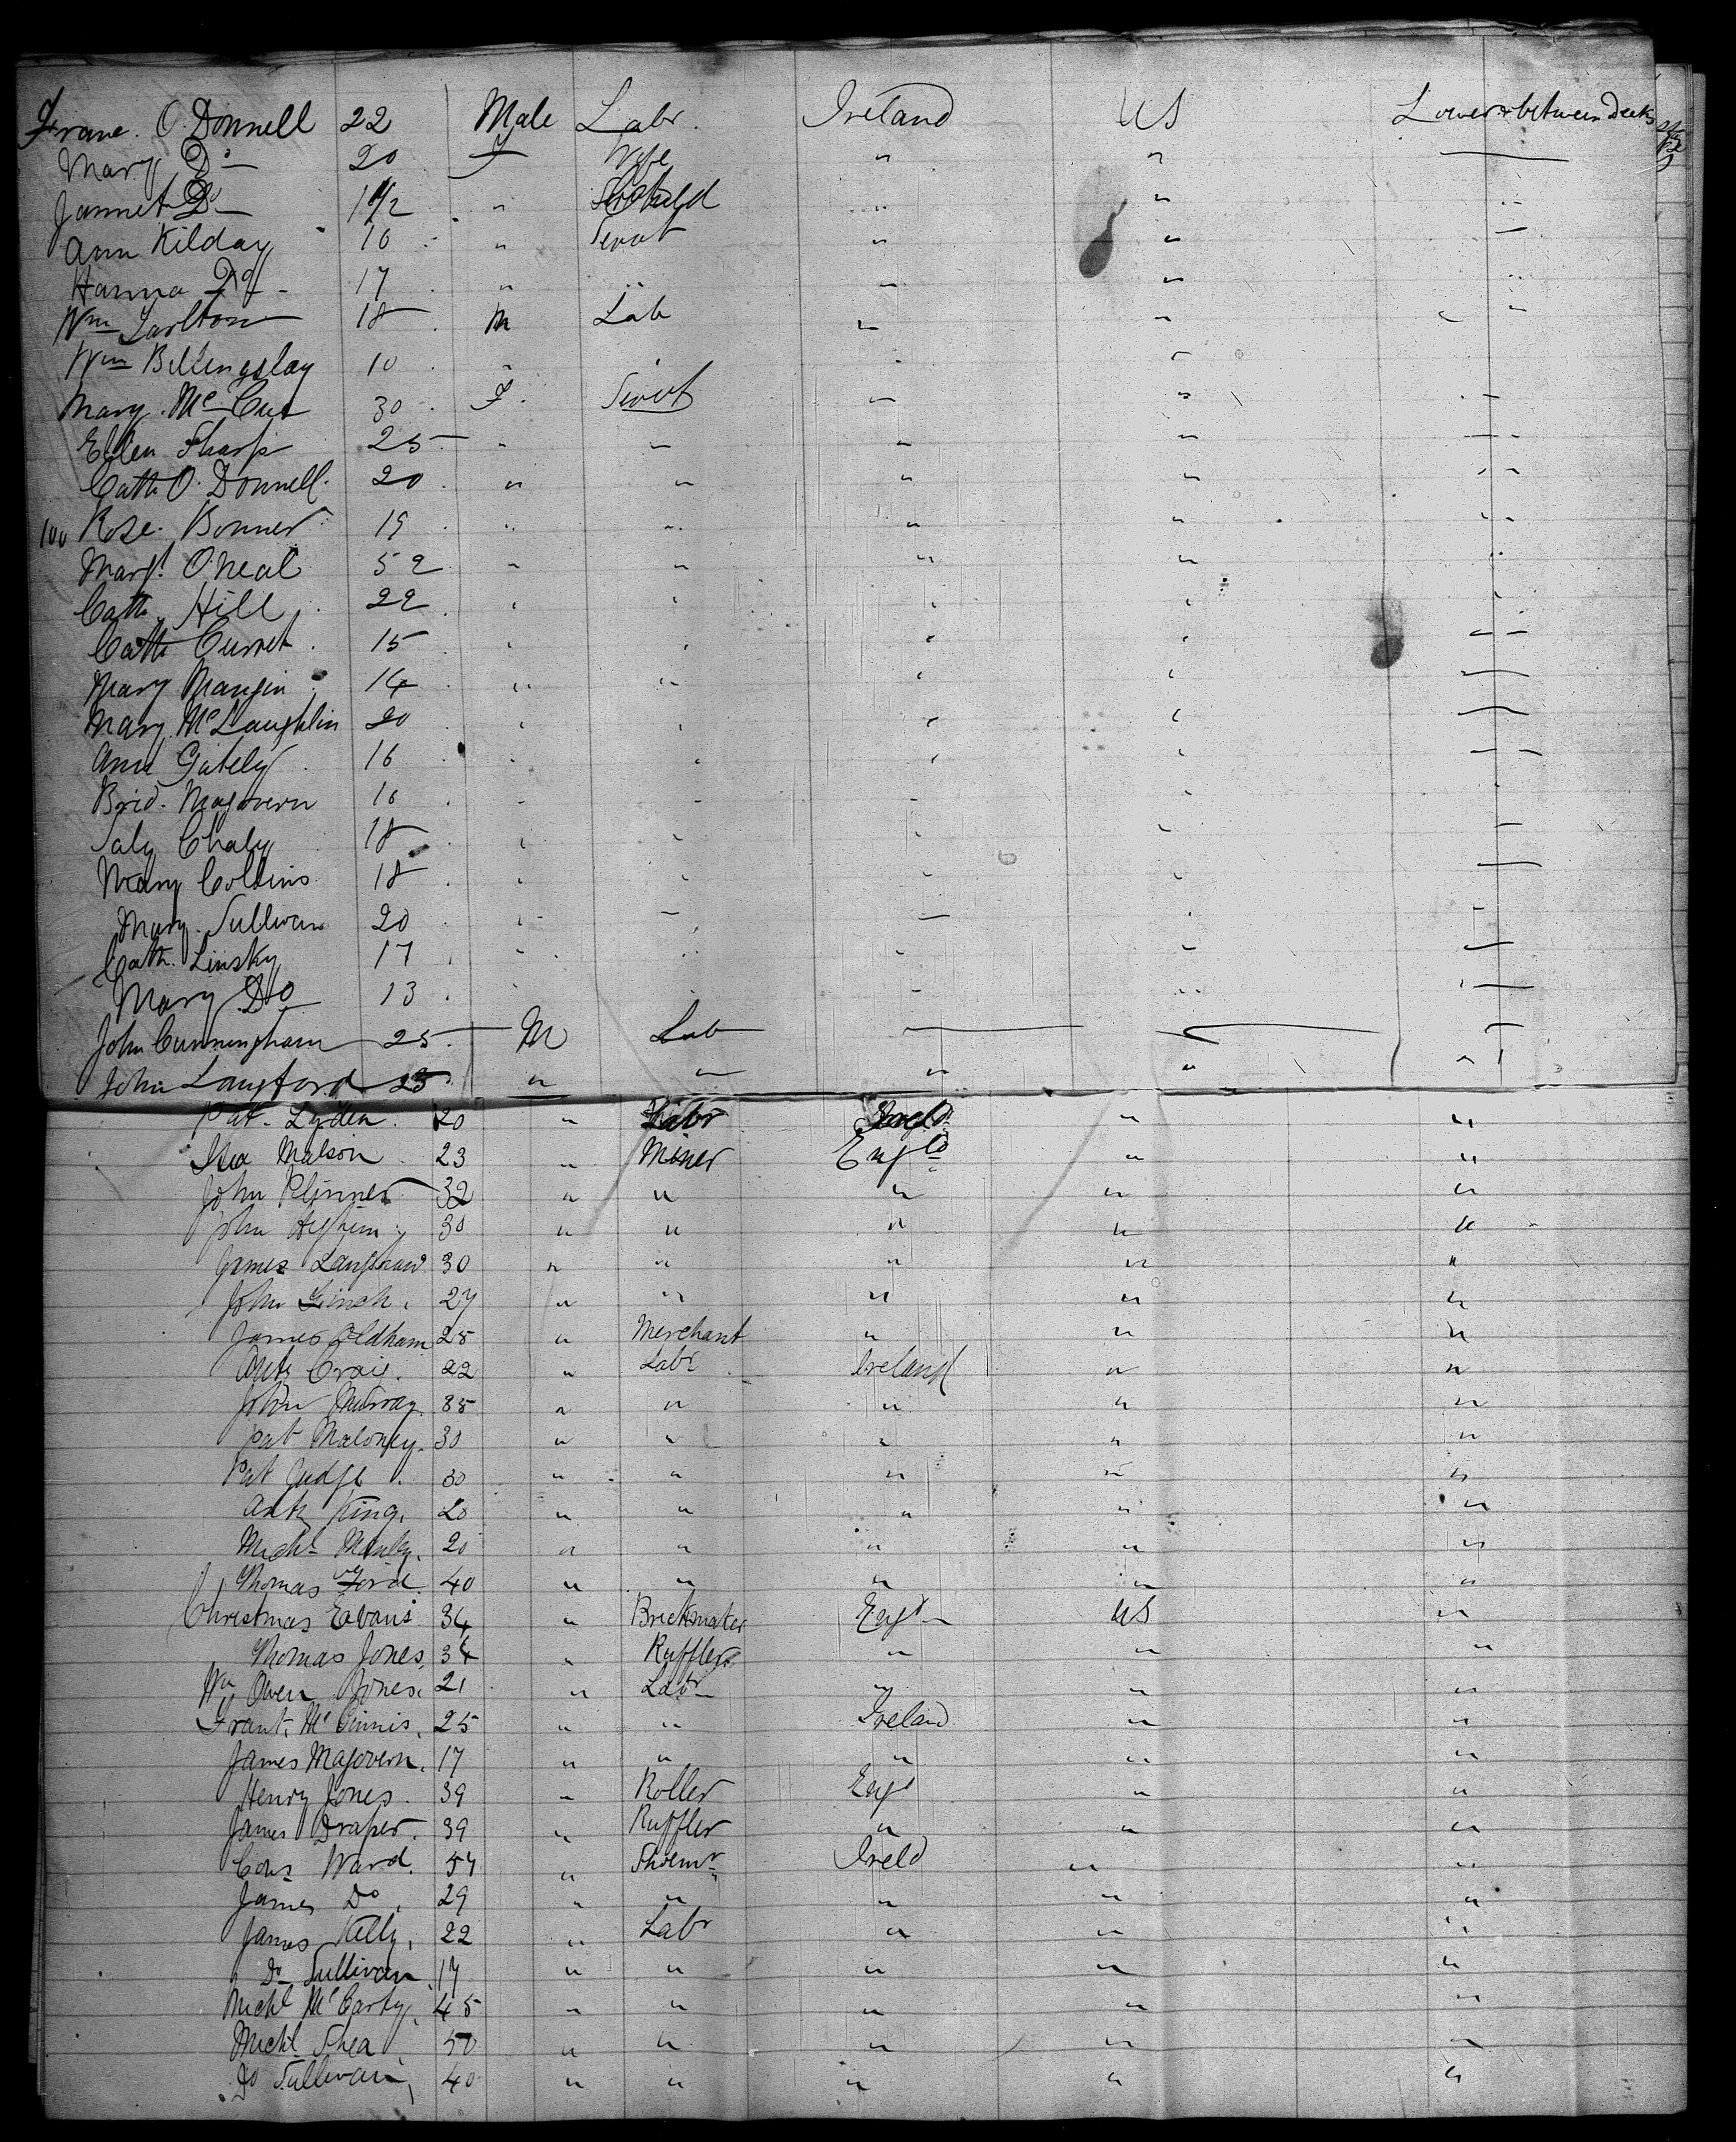 Franc. O. Donnell 22 Male Labr. Ireland US Lower & between Decks
Mary Do 20 F Wife " " —
Jannet Do 1 1/2 " Child " " "
Ann Kilday 16 " Servt " " —
Hanna Do 17 " " " " "
Wm Tarlton 18 M Lab " " "
Wm Billingslay 10 " " "
Mary McCue 30 F. Servt " " "
Ellen Sharp 25 " " " " "
Cath O. Donnell. 20 " " " " "
100 Rose. Bonner 19 " " " " "
Margt. O.Neal 52 " " " " "
Cath. Hill 22 " " " " "
Cath Curret. 15 " " " " "
Mary Mangin 14 " " " " —
Mary McLaughlin 20 " " " " —
Ann Gately 16 " " " " "
Brid. Magovern 16 " " " " "
Saly Chaly 18 " " " " —
Mary Collins 18 " " " " —
Mary Sullivan 20 " " " " "
Cath. Linsky 17 " " " " —
Mary Do 13 " " " " —
John Cunningham 25 M Lab — " "
John Langford 25 " " " " "
Pat. Lyden. 20 " Labr Ireld " "
Malson 23 " Miner Engld " "
John 32 " " " " "
John 30 " " " " "
James Langshaw 30 " " " " "
John Ginch. 27 " " " " "
James Oldham 25 " Merchant " " "
Craig. 22 " Labr Ireland " "
John Murray 35 " " " " "
Pat Maloney. 30 " " " " "
Pat Judge. 30 " " " " "
Anty King. 20 " " " " "
Michl Manly. 20 " " " " "
Thomas Ford. 40 " " " " "
Christmas Evans 34 " Brickmaker Engd US "
Thomas Jones, 34 " Ruffler " " "
Wm Owen Jones. 21 " Labr " " "
Frank. McGinnis, 25 " " Ireland " "
James Magovern. 17 " " " " "
Henry Jones. 39 " Roller Engd " "
James Draper. 39 " Ruffler " " "
Ward. 54 " Shoemr Ireld " "
James Do. 29 " " " " "
James Kelly, 22 " Labr " " "
Do Sullivan 17 " " " " "
Michl McCarty, 45 " " " " "
Michl Shea 50 " " " " "
Do Sullivan, 40 " " " " "